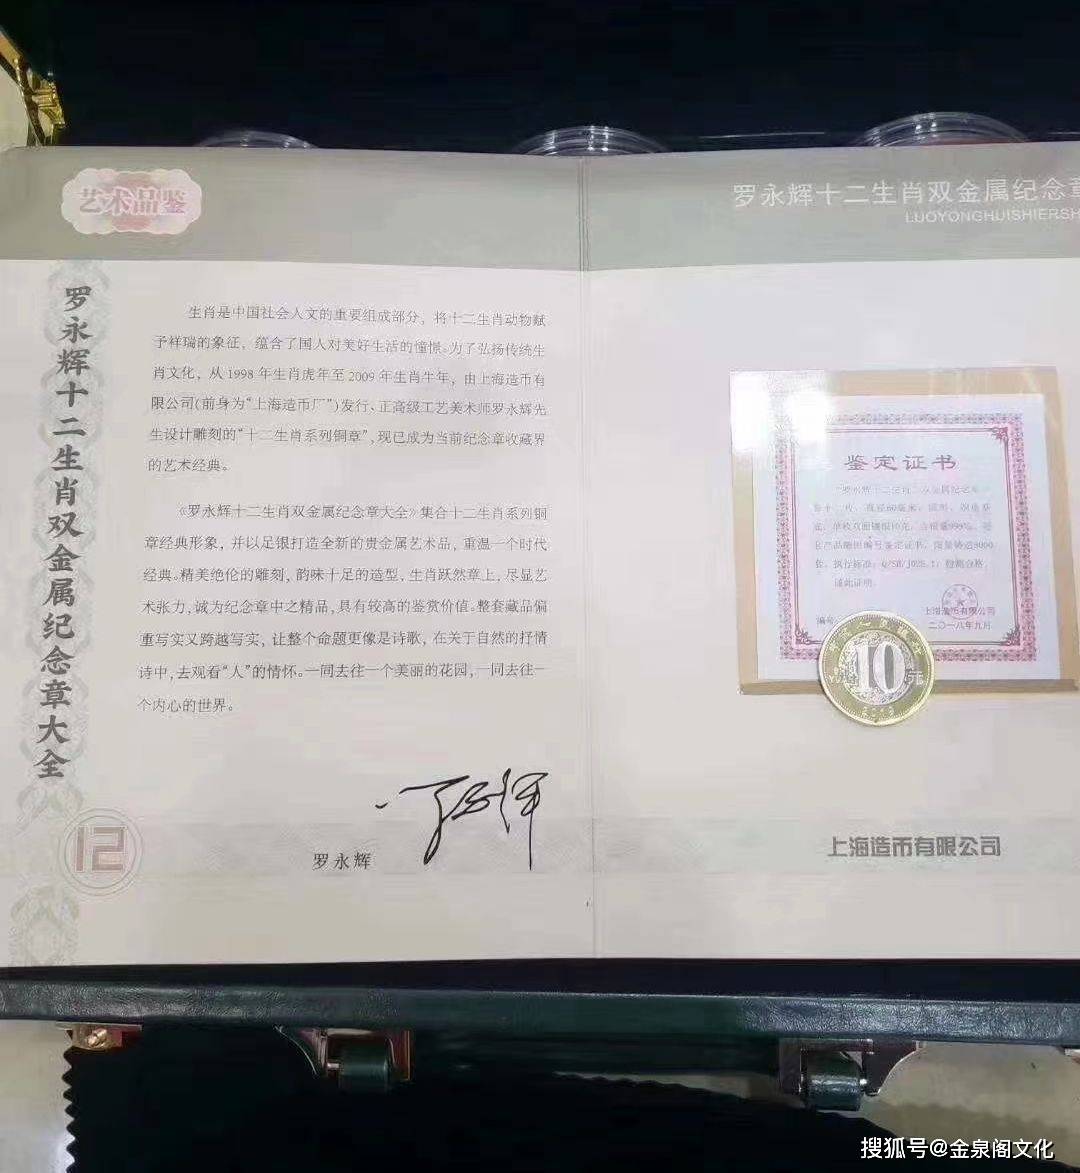 艺术品鉴
罗永辉十二生肖双金属纪念章大全
生肖是中国社会人文的重要组成部分，将十二生肖动物赋
予祥瑞的象征，蕴含了国人对美好生活的憧憬。为了弘扬传统生
肖文化，从1998年生肖虎年至2009年生肖牛年，由上海造币有
限公司(前身为“上海造币厂”)发行、正高级工艺美术师罗永辉先
生设计雕刻的“十二生肖系列铜章”，现已成为当前纪念章收藏界
的艺术经典。
《罗永辉十二生肖双金属纪念章大全》集合十二生肖系列铜
章经典形象，并以足银打造全新的贵金属艺术品，重温一个时代
经典。精美绝伦的雕刻，韵味十足的造型，生肖跃然章上，尽显艺
术张力，诚为纪念章中之精品，具有较高的鉴赏价值。整套藏品偏
重写实又跨越写实，让整个命题更像是诗歌，在关于自然的抒情
诗中，去观看“人”的情怀。一同去往一个美丽的花园，一同去往一
个内心的世界。
罗永辉
12
罗永辉十二生肖双金属纪念章
LUOYONGHUISHIERSH
鉴定证书
罗永辉十二生肖双金属纪念章
套十二枚，直径60毫米，
999%
产品随附编号鉴定证书，限量铸造3000
套，执行标准：Q/SB/J025.1；检测合格，
诚此证明。
上海造币有限公司
编号：
二〇一八年九月
中国人民银行
10
元
YUAN
上海造币有限公司
搜狐号@金泉阁文化